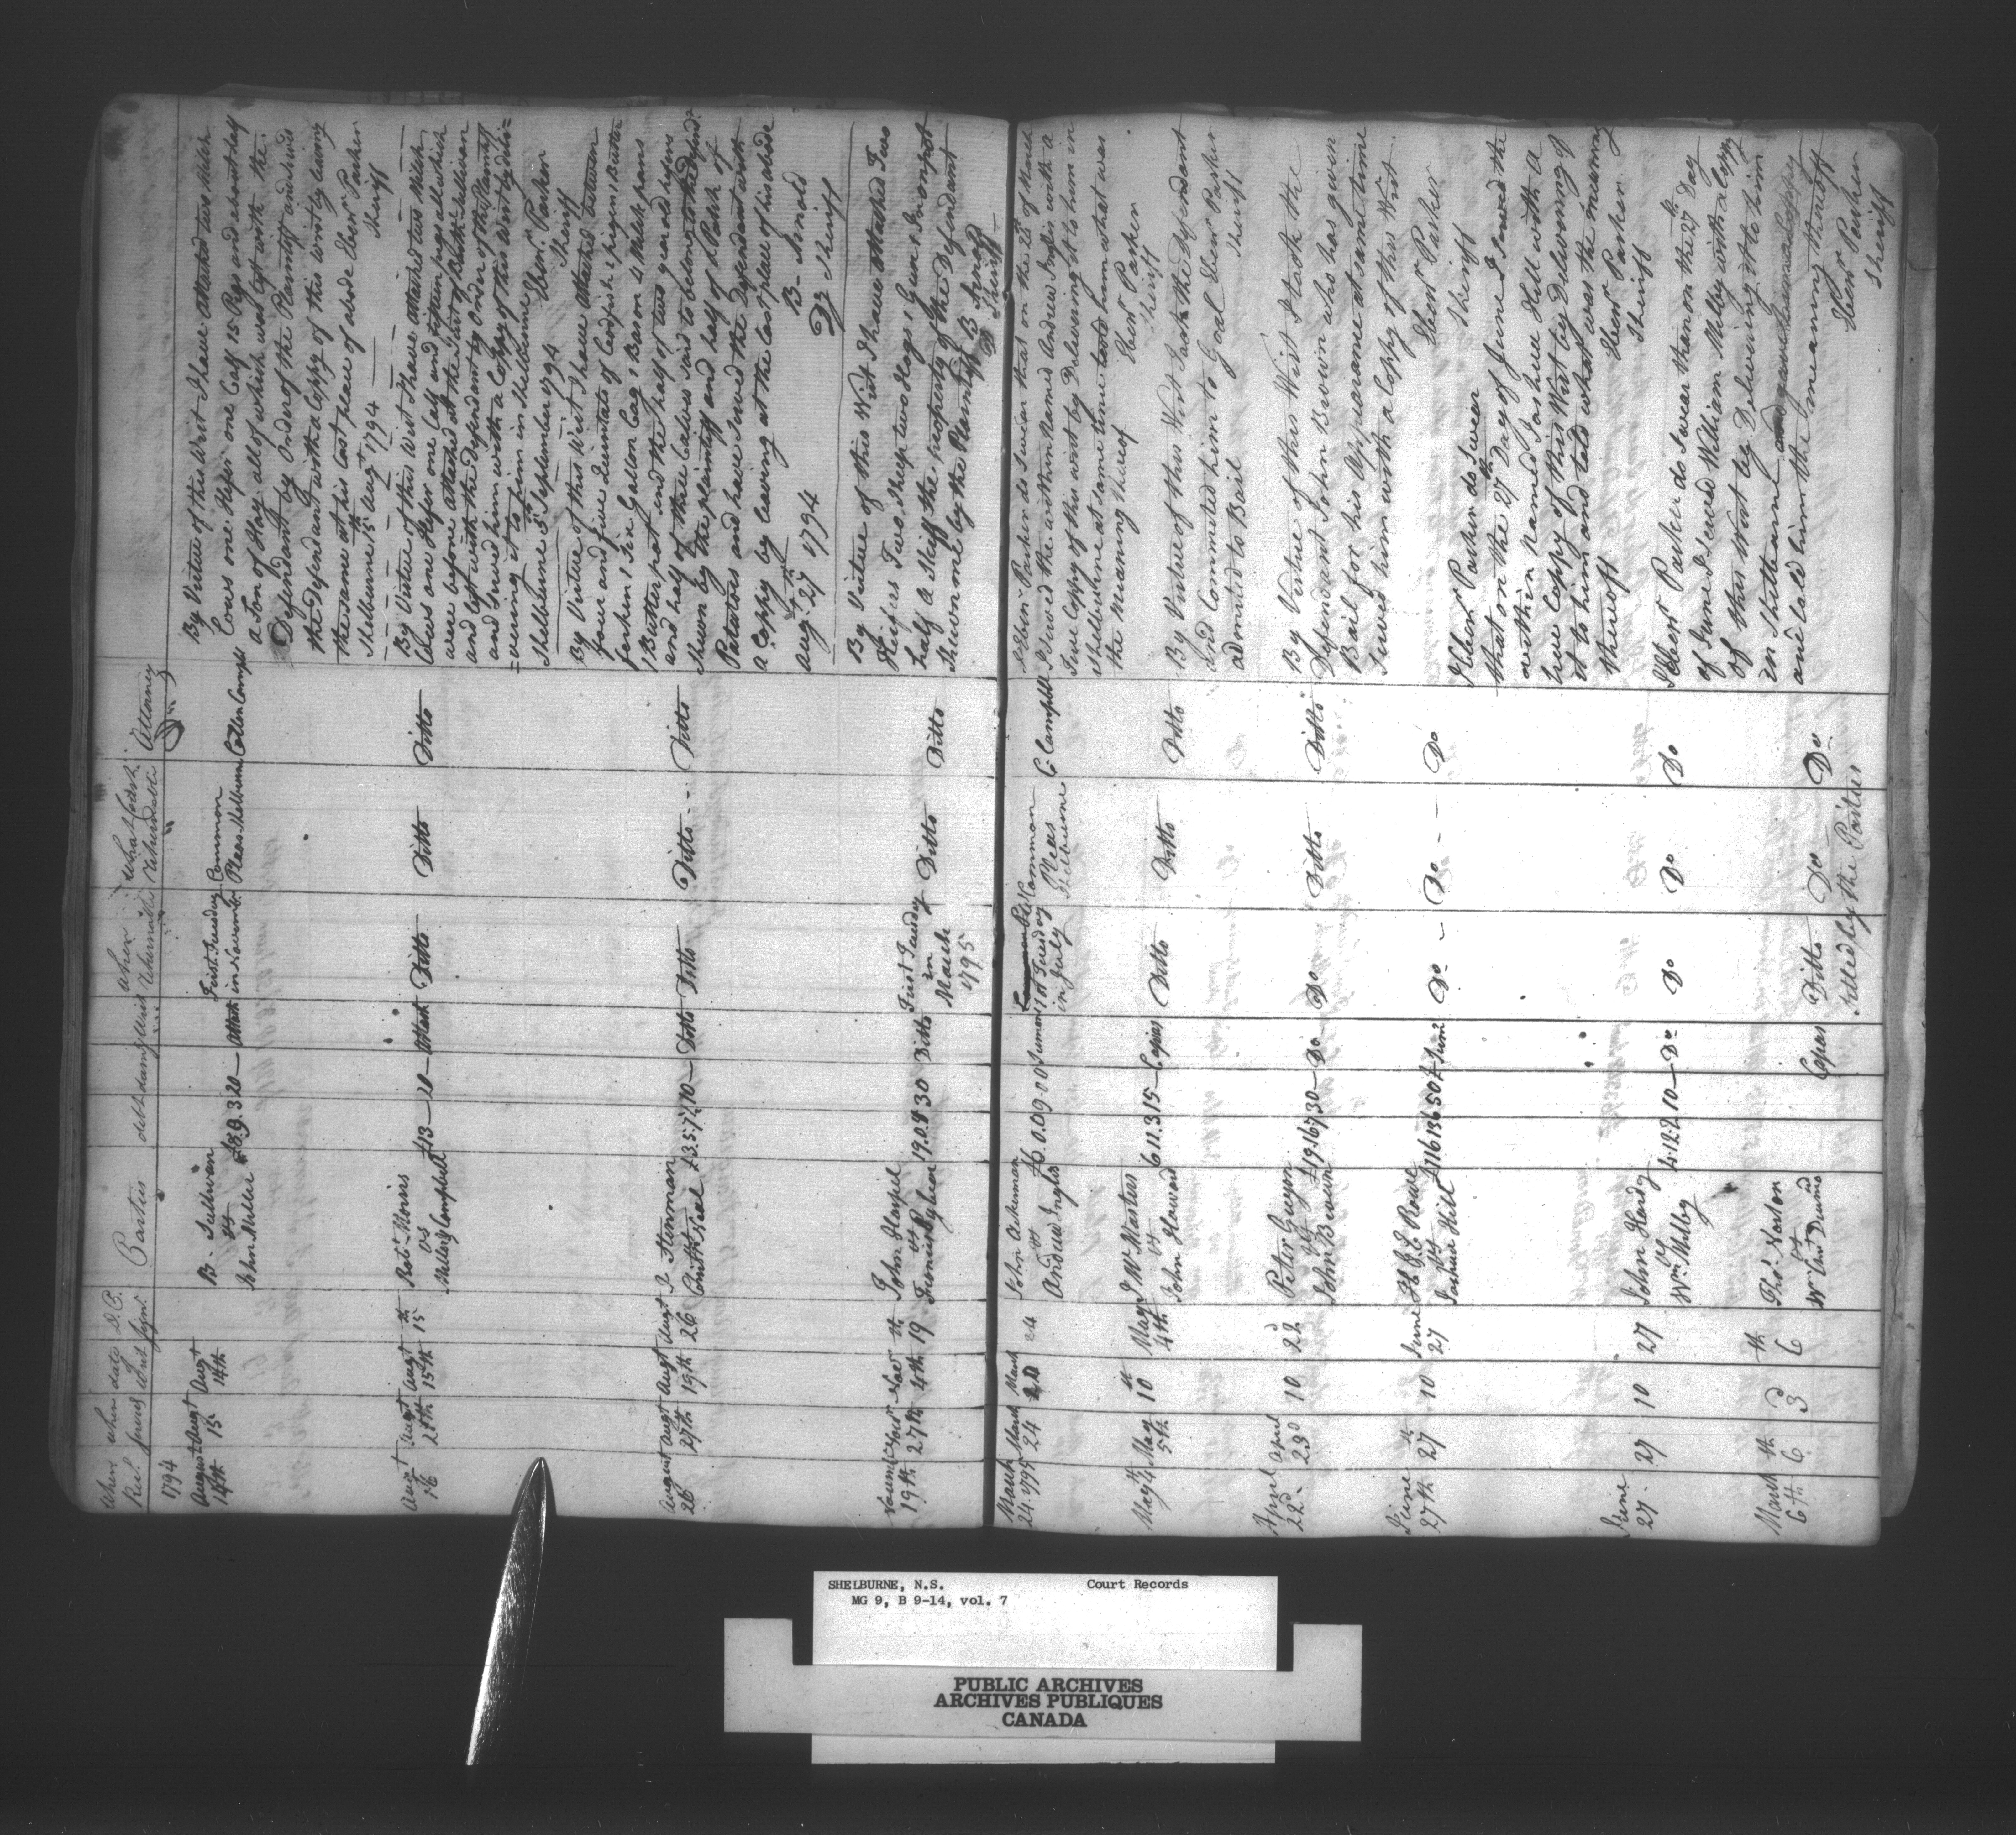 When Recd
when served
date of Writ
D.P. Signd
Parties
debt
damg
Writ
when Returnable
what Court Returnable
Attorney
1794
August 14th
Augt 15
Augt 14th
B. Sullivan
vs
John Miller
£8.9.3
20 —
Attach
First Tuesday
in November
Common
Pleas Shelburne
Collen Campbell
By Virtue of this Writ I have attached two Milch
Cows one Heifer one Calf 15 Pigs and about half
a Ton of Hay all of which was left with the
Defendant by Order of the Plaintiff and serv'd
the Defendant with a Coppy of this writ by leaving
the same at his last place of abode Ebenr Parker
Shelburne 15th Augt 1794 — Sheriff
Augt 16
Augt 25th
Augt 15th
th 15
Robt Morris
vs
Campbell
£13 —
20 —
Attach
Ditto
Ditto
Ditto
By Virtue of this Writ I have attached two Milch
Cows one Heifer one Calf and fifteen pigs all which
were before attached at the Suit of Bartle Sullivan
and left with the Defendant by Order of the Plaintiff
and Served him with a Coppy of this Writ by deli=
=vering it to him in Shelburne
Shelburne 5th September 1794 Ebenr Parker
Sheriff
August 26
Augt 27th
Augt 19th
Augt 26
Neal
£3.5.7½
10 —
Ditto
Ditto
Ditto
Ditto
By Virtue of this Writ I have attached between
four and five Quintals of Codfish 2 pigen 1 Buter
ferkin 1 Six Gallon Cag 1 Bason 4 Milk pans
1 Butter pot and the half of two year old hefers
and half of three Calves said to belong to the Defendt
shewn by the plaintiff and half of a Patch of
Patatoes and have Served the Defendant with
a Coppy by leaving at the last place of his abode
Augt 27th 1794
B. Sinold
Dy Sheriff
19th
Novr 27th
Novr 4th
th 19
John
vs
19.0.9
30
Ditto
First Tuesday
in
March
1795
Ditto
Ditto
By Virtue of this Writ I have attached Two
Heifers Two Sheep two Hogs 1 Gun 1 Iron pot
half a Skiff the property of the Defendant
Shewn me by the Plaintiff B. Sinold
Dy Sheriff
March
24 1795
March
24
March
20
24
John Ackerman
vs
Andrew Inglis
£6.0.0
9.0.0
Sumons
1st Tuesday
in July
Common
Pleas
Shelburne
C. Campbell
I Ebenr Parker do Swear that on the 25th of March
I Served the within Named Andrew Inglis with a
True Coppy of this writ by Delivering it to him in
Shelburne at same time told him what was
the Meaning thereof Ebenr Parker
Sheriff
May 4th
May 5th
th 10
May 4th
J W Masters
vs
John Howard
6.11.3
15 —
Capias
Ditto
Ditto
Ditto
By Virtue of this Writ I took the Defendant
and Commited him to Goal Ebenr Parker
admited to Bail Sheriff
April
22d
April
23d
10
d 22
Peter Guyon
vs
John Brown
£19.16.7
30 —
Do
Do
Ditto
Ditto
By Virtue of this Writ I took the
Defendant John Brown who has given
Bail for his Appearance at same time
Served him with a Coppy of this Writ
Ebenr Parker
Sheriff
June
27th
th 27
10
June
27
Rowe
vs
Joshua Hill
£116.13.6
50 £
Sums
Do —
Do — —
Do
I Ebenr Parker do Swear
that on the 27th Day of June I Served the
within Named Joshua Hill with a
true Coppy of this Writ by Delivering of
it to him and told what was the meaning
thereoff Ebenr Parker
Sheriff
June
27
27
10
27
John Hardy
vs
Wm Melby
4.12.2
10 —
Do
Do
Do
Do
I Ebenr Parker do Swear than on the 27th Day
of June I Served William Melby with a Copy
of this Writ by Delivering it to him
in Shelburne
and told him the meaning thereoff
Ebenr Parker
Sheriff
March
6th
th 6
d 3
th 6
Thos
vs
Wm
Capias
Ditto
Do
Do
Settled by the Parties
SHELBURNE, N.S. Court Records
MG 9, B 9-14, vol. 7
PUBLIC ARCHIVES
ARCHIVES PUBLIQUES
CANADA